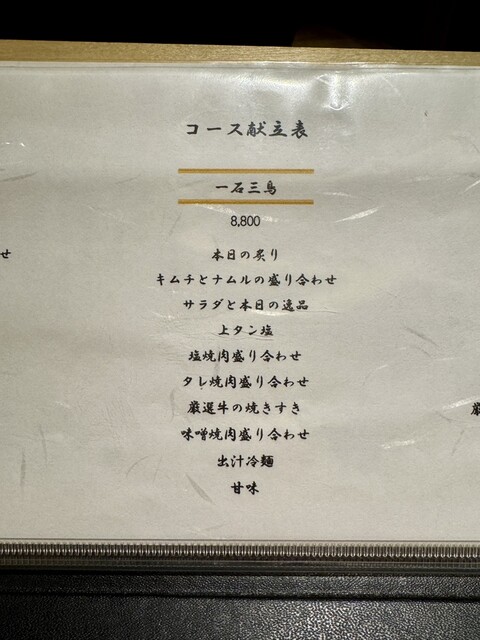 コース献立表
一石三鳥
8,800
本日の炙り
キムチとナムルの盛り合わせ
サラダと本日の逸品
上タン塩
塩焼肉盛り合わせ
タレ焼肉盛り合わせ
厳選牛の焼きすき
味噌焼肉盛り合わせ
出汁冷麺
甘味
せ
厳